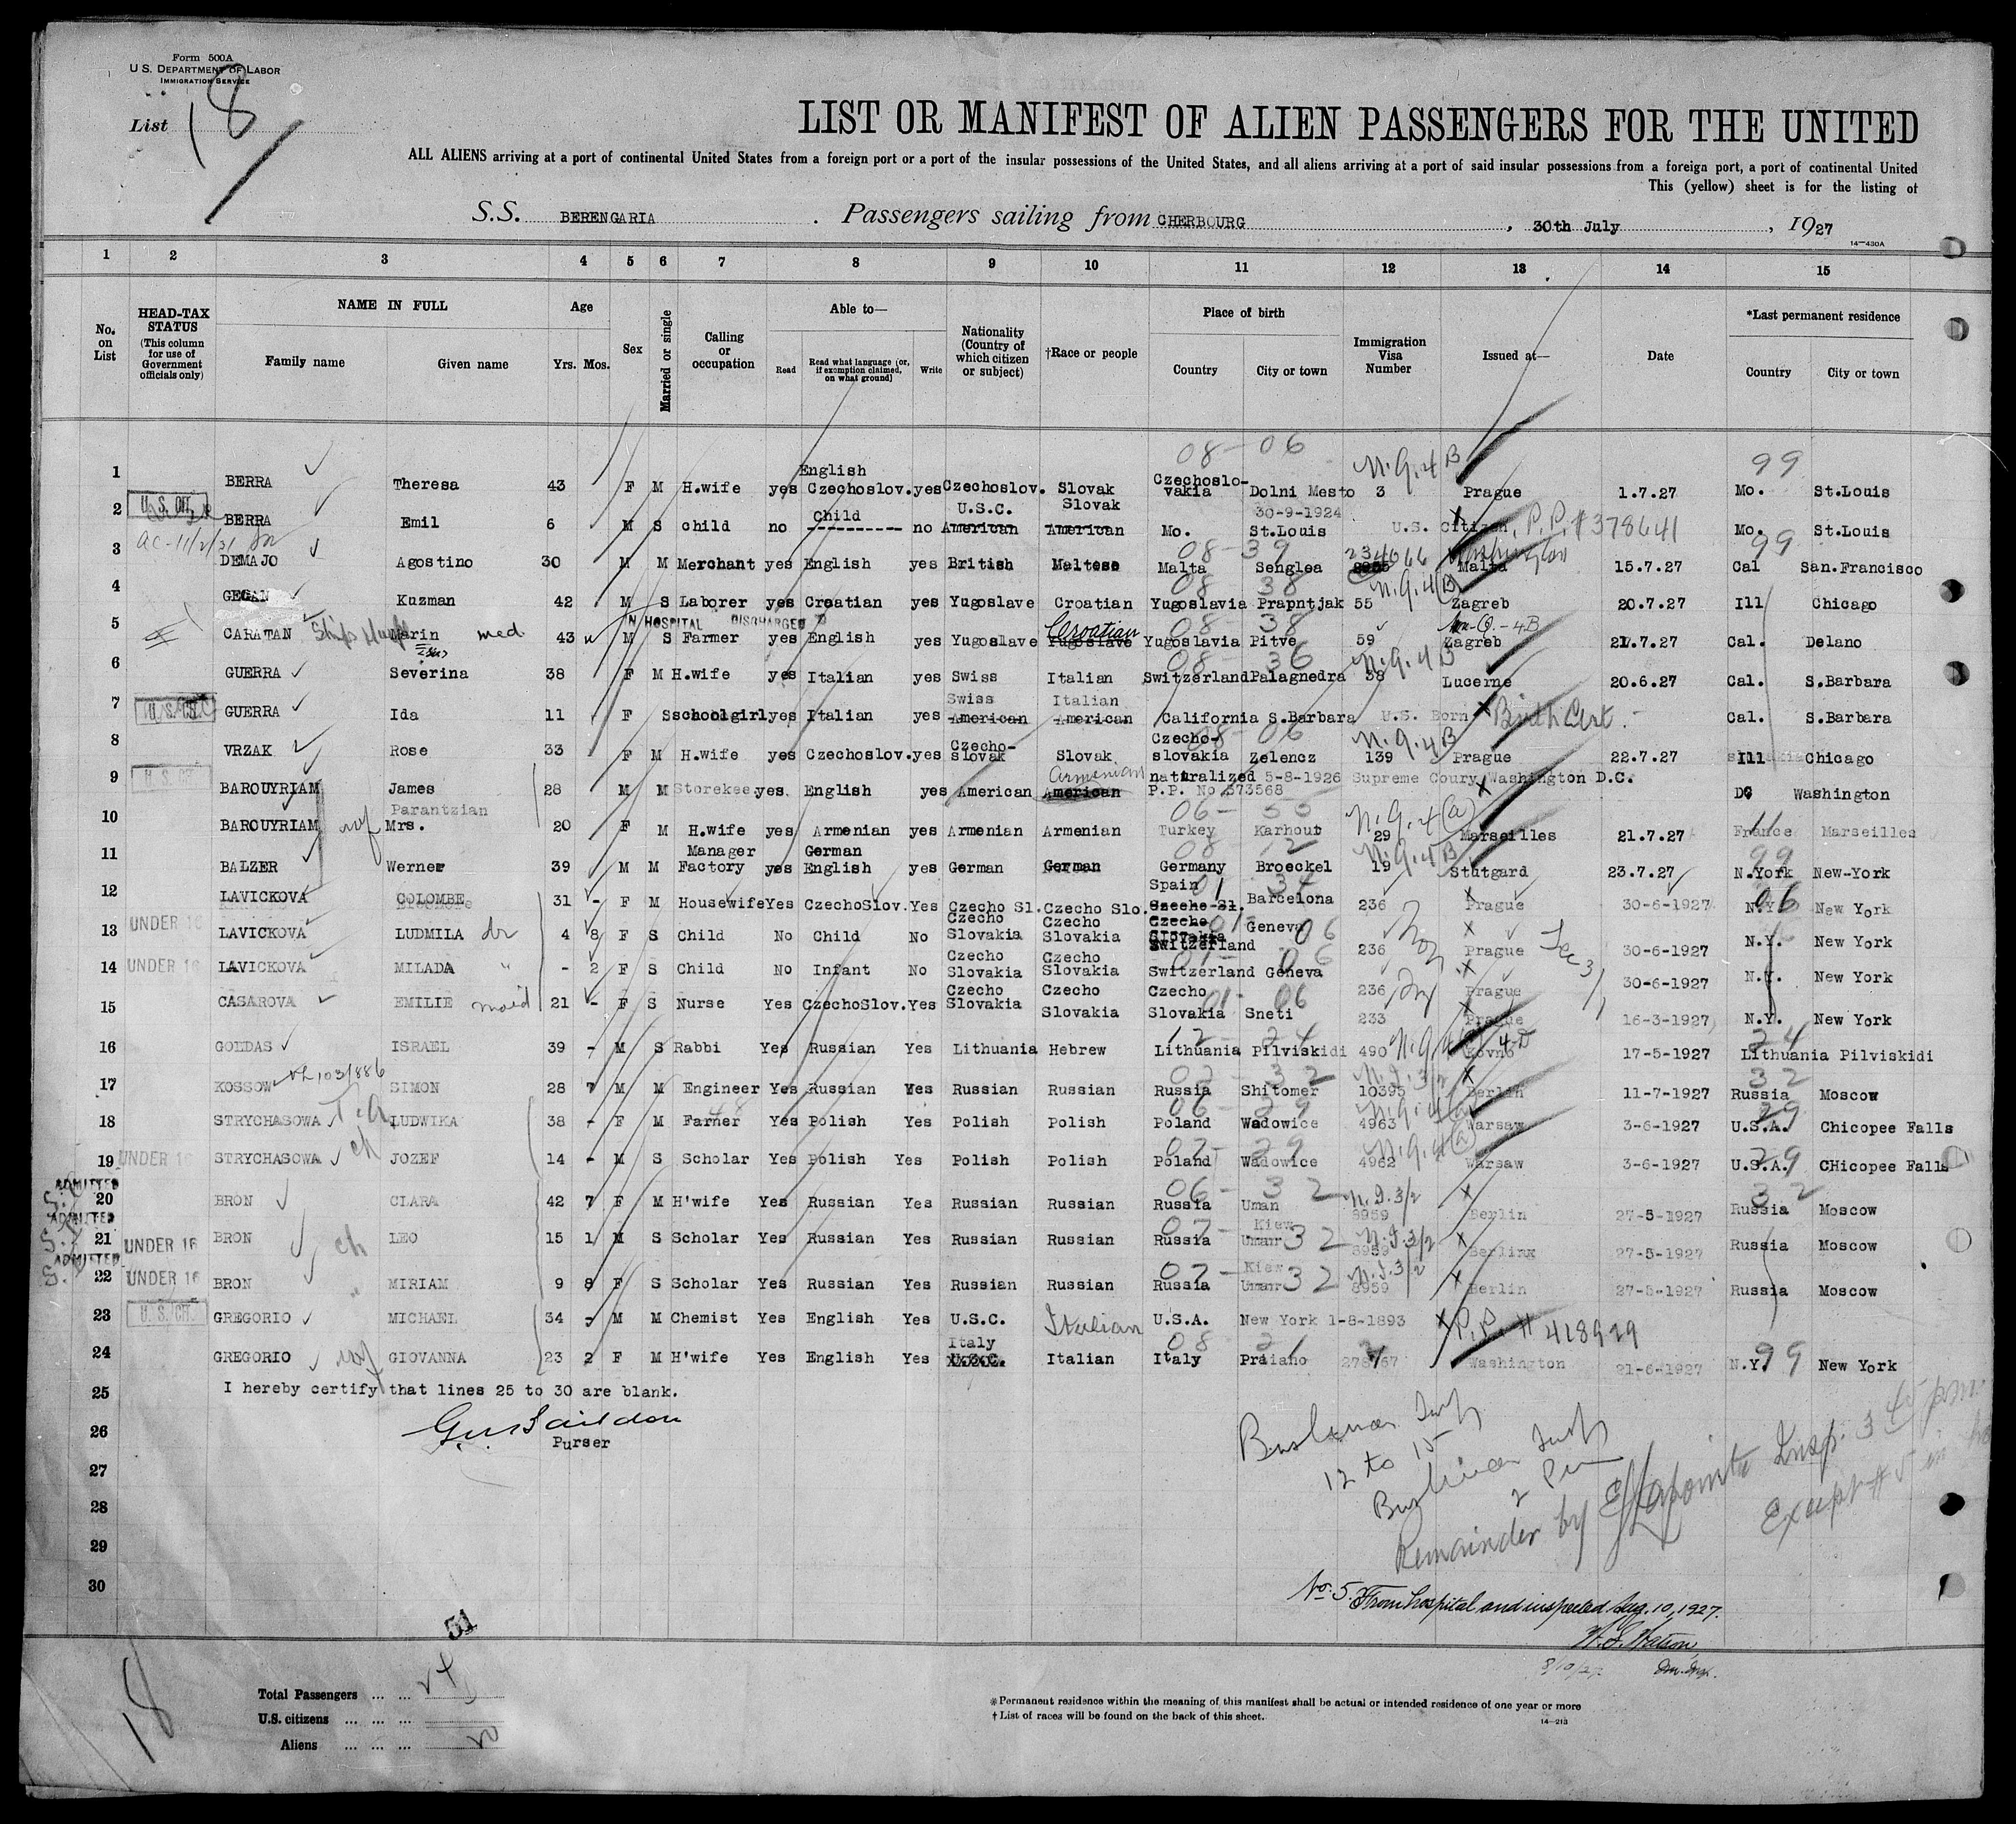 Form 500A
U.S. DEPARTMENT OF LABOR
IMMIGRATION SERVICE
List 18
LIST OR MANIFEST OF ALIEN PASSENGERS FOR THE UNITED
ALL ALIENS arriving at a port of continental United States from a foreign port or a port of the insular possessions of the United States, and all aliens arriving at a port of said insular possessions from a foreign port, a port of continental United
This (yellow) sheet is for the listing of
S.S. BERENGARIA . Passengers sailing from CHERBOURG , 30th July , 1927
14—430A
1 2 3 4 5 6 7 8 9 10 11 12 13 14 15
No. on List
HEAD-TAX STATUS (This column for use of Government officials only)
NAME IN FULL Family name Given name
Age Yrs. Mos.
Sex
Married or single
Calling or occupation
Able to— Read Read what language (or, if exemption claimed, on what ground) Write
Nationality (Country of which citizen or subject)
†Race or people
Place of birth Country City or town
Immigration Visa Number
Issued at—
Date
*Last permanent residence Country City or town
08-06 N.Q.4B 99
1 BERRA Theresa 43 F M H.wife yes English Czechoslov. yes Czechoslov. Slovak Czechoslo-vakia Dolni Mesto 3 Prague 1.7.27 Mo. St.Louis
2 U.S. CIT. BERRA Emil 6 M S child no Child ---------- no U.S.C. American Slovak American Mo. 30-9-1924 St.Louis U.S. Citizen, P.P.#378641 Mo. St.Louis
08-39 234066 Washington 99
3 DEMAJO Agostino 30 M M Merchant yes English yes British Maltese Malta Senglea Malta 15.7.27 Cal San.Francisco
08 38 N.Q.4(B)
4 GEGAN Kuzman 42 M S Laborer yes Croatian yes Yugoslave Croatian Yugoslavia Prapntjak 55 Zagreb 20.7.27 Ill Chicago
IN HOSPITAL DISCHARGED 08-38
5 CARATAN Marin med. 43 M S Farmer yes English yes Yugoslave Croatian Yugoslave Yugoslavia Pitve 59 Zagreb 21.7.27 Cal. Delano
08-36 N.Q.4B
6 GUERRA Severina 38 F M H.wife yes Italian yes Swiss Italian Switzerland Palagnedra 38 Lucerne 20.6.27 Cal. S.Barbara
7 U.S. CIT. GUERRA Ida 11 F S schoolgirl yes Italian yes Swiss American Italian American California S.Barbara U.S. Born Birth Cert. Cal. S.Barbara
08-06 N.Q.4B
8 VRZAK Rose 33 F M H.wife yes Czechoslov. yes Czecho-slovak Slovak Czecho-slovakia Zelencz 139 Prague 22.7.27 Ill Chicago
9 U.S. CIT. BAROUYRIAM James 28 M M Storekee. yes. English yes American Armenian American naturalized 5-8-1926 Supreme Coury Washington D.C. P.P. No 373568 DC Washington
06-55 N.Q.4(a) 11
10 BAROUYRIAM wf Parantzian Mrs. 20 F M H.wife yes Armenian yes Armenian Armenian Turkey Karhout 29 Marseilles 21.7.27 France Marseilles
08-12 N.Q.4B 99
11 BALZER Werner 39 M M Manager Factory yes German English yes German German Germany Broeckel 19 Stutgard 23.7.27 N.York New-York
01 34 06
12 LAVICKOVA COLOMBE 31 - F M Housewife Yes CzechoSlov. Yes Czecho Sl. Czecho Slo. Spain Czecho Sl. Barcelona 236 Prague 30-6-1927 N.Y. New York
01-06
13 UNDER 16 LAVICKOVA LUDMILA dr 4 8 F S Child No Child No Czecho Slovakia Czecho Slovakia Czecho Slovakia Switzerland Geneva 236 Prague 30-6-1927 N.Y. New York
01-06 Sec 3
14 UNDER 16 LAVICKOVA MILADA " - 2 F S Child No Infant No Czecho Slovakia Czecho Slovakia Switzerland Geneva 236 Prague 30-6-1927 N.Y. New York
01-06
15 CASAROVA EMILIE maid 21 - F S Nurse Yes CzechoSlov. Yes Czecho Slovakia Czecho Slovakia Czecho Slovakia Sneti 233 Prague 16-3-1927 N.Y. New York
12-24 24
16 GOLDAS ISRAEL 39 - M S Rabbi Yes Russian Yes Lithuania Hebrew Lithuania Pilviskidi 490 Kovno 17-5-1927 Lithuania Pilviskidi
02-32 N.I.3/2 32
17 KOSSOW SIMON 28 7 M M Engineer Yes Russian Yes Russian Russian Russia Shitomer 10395 Berlin 11-7-1927 Russia Moscow
06-29 29
18 STRYCHASOWA LUDWIKA 38 - F M Farner Yes Polish Yes Polish Polish Poland Wadowice 4963 Warsaw 3-6-1927 U.S.A. Chicopee Falls
07-29 N.Q.4(a) 29
19 UNDER 16 STRYCHASOWA ch JOZEF 14 - M S Scholar Yes Polish Yes Polish Polish Poland Wadowice 4962 Warsaw 3-6-1927 U.S.A. CHicopee Falls
06-32 N.I.3/2 32
20 ADMITTED BRON CLARA 42 7 F M H'wife Yes Russian Yes Russian Russian Russia Uman 8959 Berlin 27-5-1927 Russia Moscow
07-32 N.I.3/2
21 ADMITTED UNDER 16 BRON ch LEO 15 1 M S Scholar Yes Russian Yes Russian Russian Russia Kiew Uman 8959 Berlinx 27-5-1927 Russia Moscow
07-32 N.I.3/2
22 ADMITTED UNDER 16 BRON " MIRIAM 9 8 F S Scholar Yes Russian Yes Russian Russian Russia Kiew Uman 8959 Berlin 27-5-1927 Russia Moscow
23 U.S. CIT. GREGORIO MICHAEL 34 - M M Chemist Yes English Yes U.S.C. Italian U.S.A. New York 1-8-1893 P.P. # 418929
08 21 99
24 GREGORIO wf GIOVANNA 23 2 F M H'wife Yes English Yes Italy U.S.C. Italian Italy Praiano Washington 21-6-1927 N.Y. New York
25 I hereby certify that lines 25 to 30 are blank.
26 Purser
27
28
29
30
12 to 15
2 Pm
Remainder by Insp. 3 45 pm
Except #5 in
No. 5. From hospital and inspected Aug. 10, 1927.
W.S. Watson,
8/10/27. Im. Insp.
51
18
Total Passengers ... ...
U.S. citizens ... ... ...
Aliens ... ... ...
*Permanent residence within the meaning of this manifest shall be actual or intended residence of one year or more
†List of races will be found on the back of this sheet.
14—213